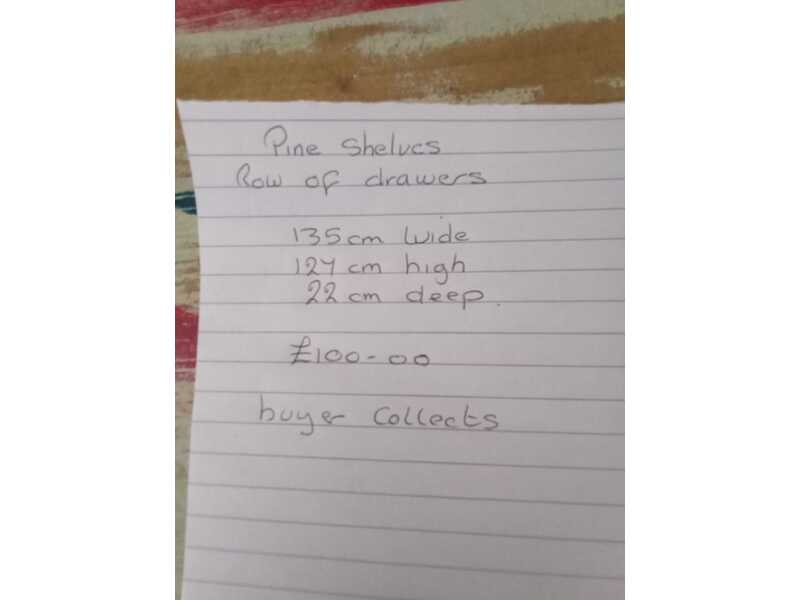 Pine Shelves
Row of drawers
135cm wide
124 cm high
22 cm deep.
£100-00
buyer Collects